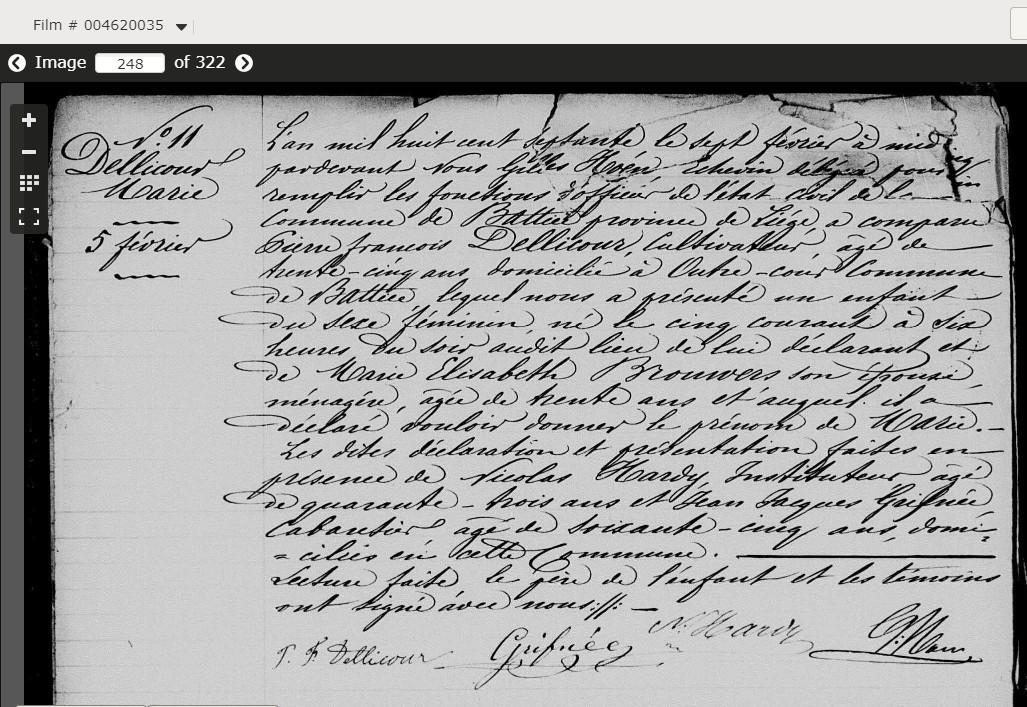 Film # 004620035
Image 248 of 322
N° 11
Dellicour
Marie
5 février
L'an mil huit cent septante le sept février à midi
pardevant nous Gilles échevin délégué pour
remplir les fonctions d'officier de l'état civil de la
Commune de Battice province de Liége, a comparu
Pierre francois Dellicour, Cultivateur, âgé de
trente-cinq ans, domicilié à Outre-cour Commune
de Battice, lequel nous a présenté un enfant
du sexe féminin, né le cinq courant à six
heures du soir audit lieu de lui déclarant et
de Marie Elisabeth Brouwers son épouse,
ménagère, agée de trente ans et auquel il a
déclaré vouloir donner le prénom de Marie.
Les dites déclaration et présentation faites en
présence de Nicolas Hardy, Instituteur, âgé
de quarante-trois ans et Jean Jacques Grifnée
Cabaretier âgé de soixante-cinq ans, domi-
=ciliés en cette Commune.
Lecture faite, le père de l'enfant et les témoins
ont signé avec nous://:
P. F. Dellicour Grifnée N. Hardy